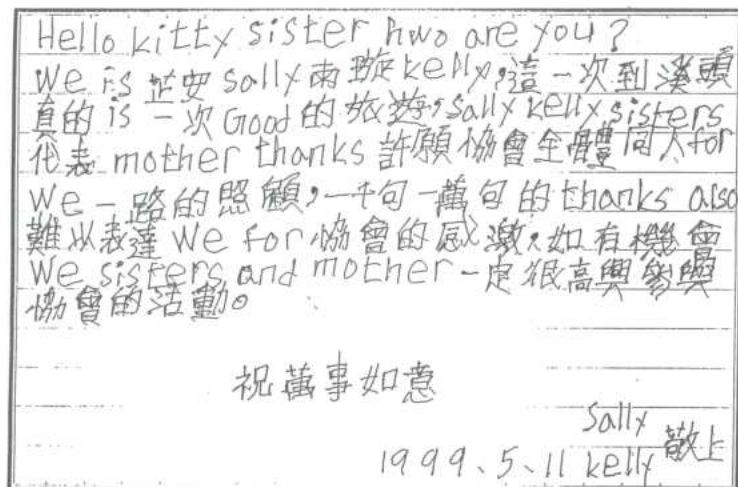 Hello kitty sister hwo are you?
We is 芷安 sally 雨璇 kelly,這一次到溪頭
真的 is 一次 Good 的旅遊,sally kelly sisters
代表 mother thanks 許願協會全體同人 for
We 一路的照顧,一千句一萬句的 thanks also
難以表達 We for 協會的感激,如有機會
We sisters and mother 一定很高興參與
協會的活動。
祝萬事如意
Sally
1999、5、11 kelly 敬上